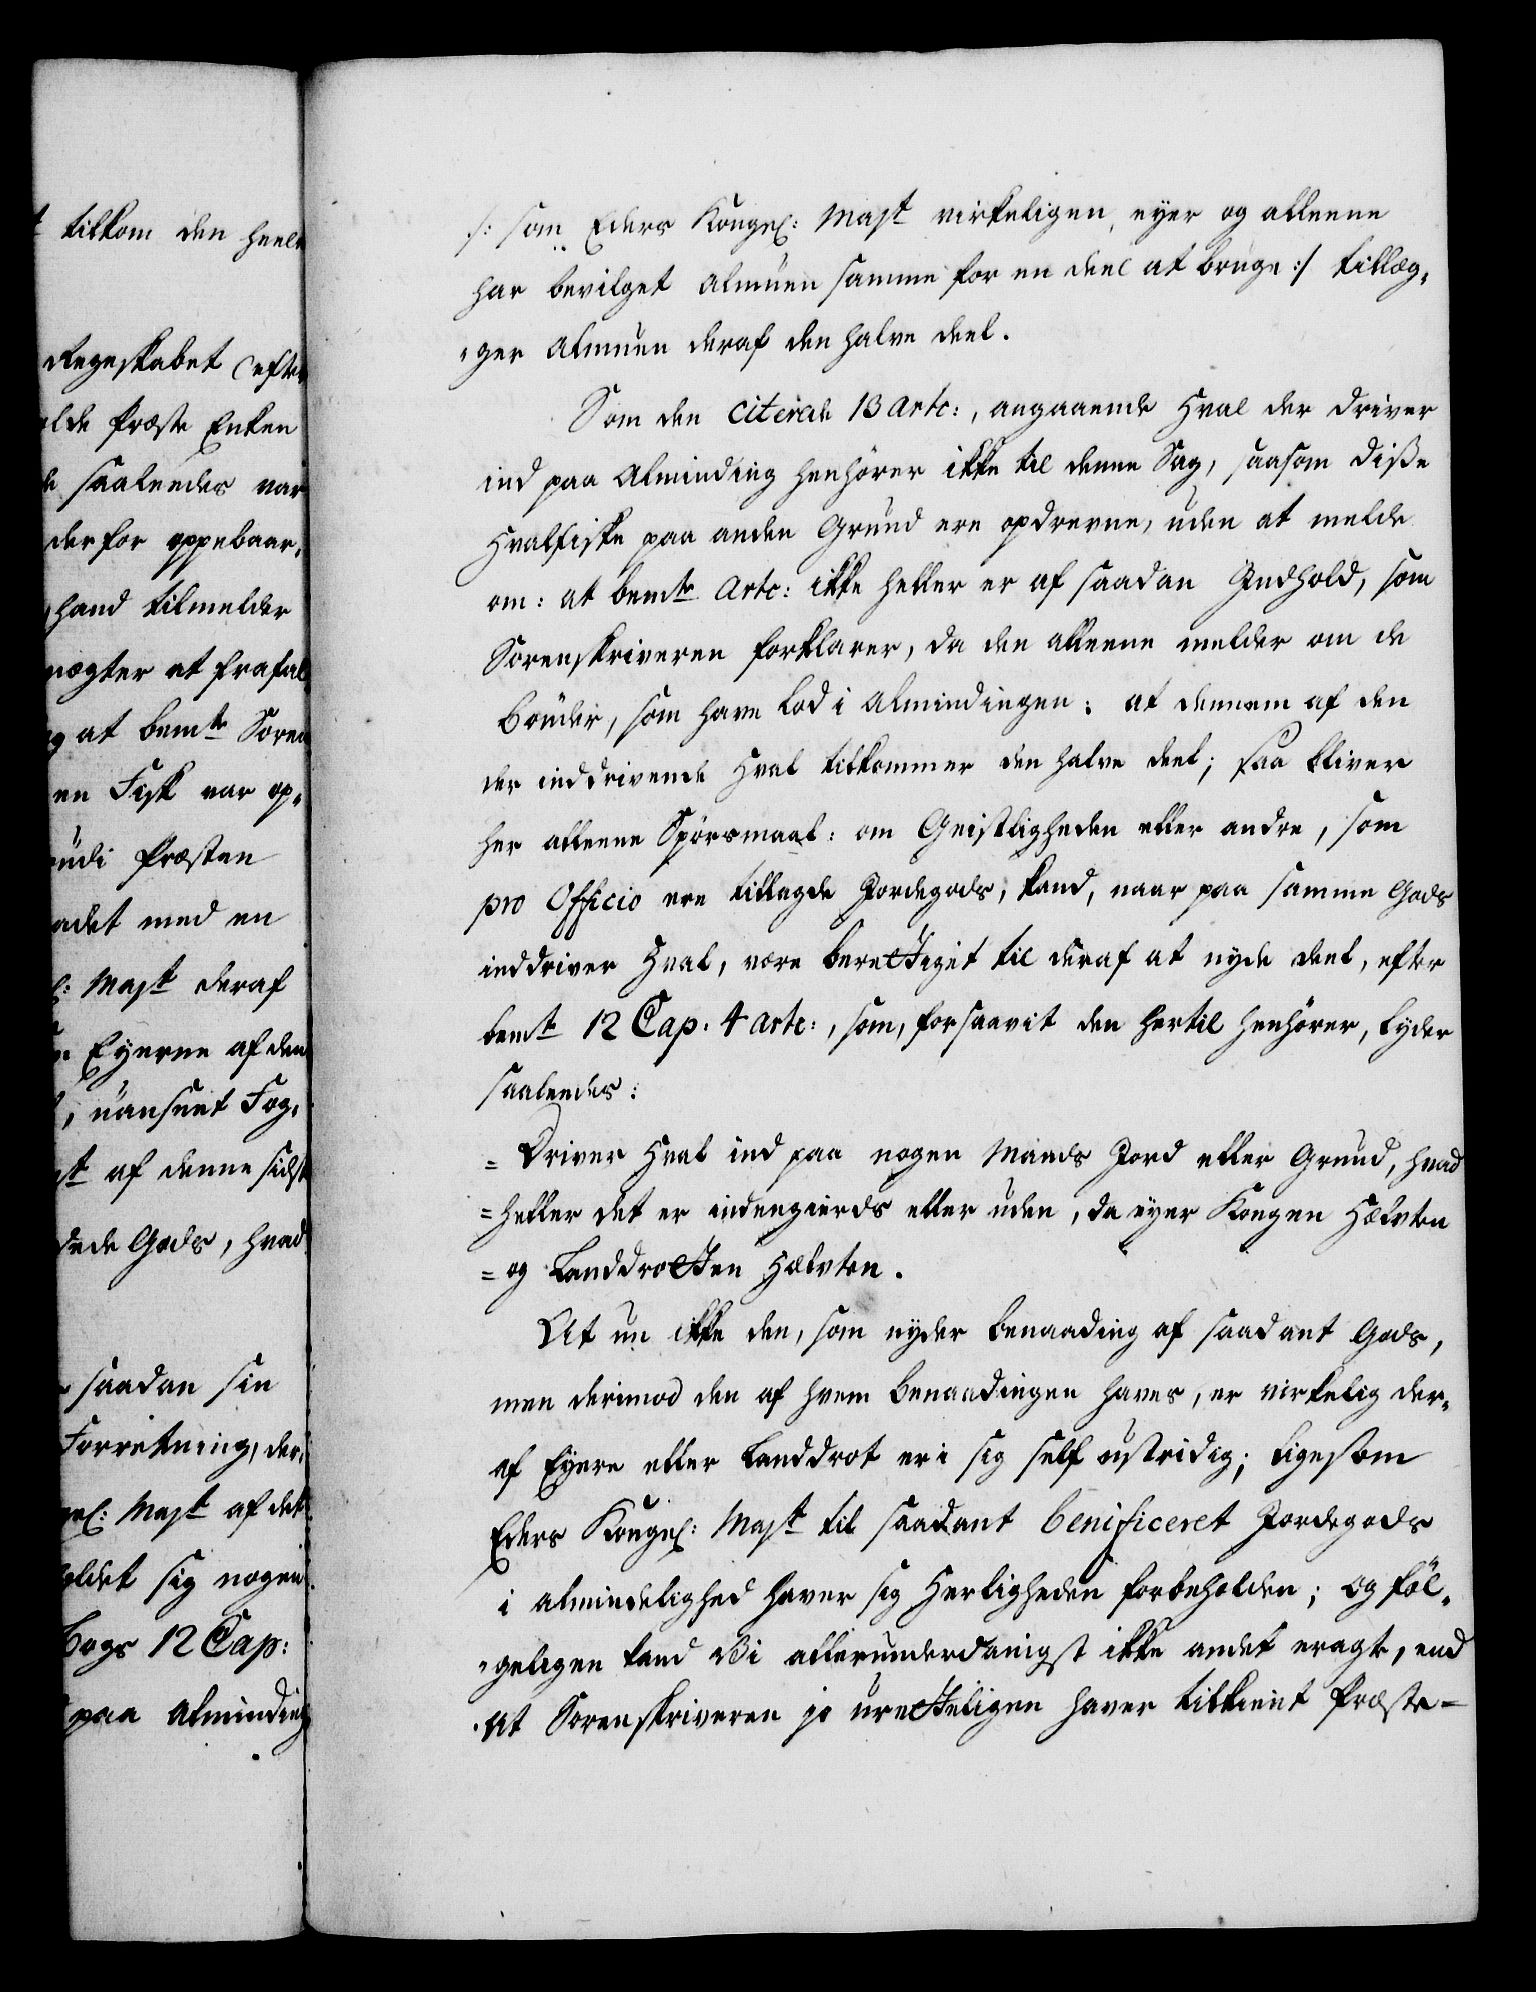 tilkom den heele
Regnskabet (efter
Præste Enken
saaleedes var
derfor oppebaar,
hand tilmelder
nægter at frafal
at bemte Soren
en Fisk var op,
Præsten
med en
Mayt deraf
Eyerne af den
, uanseet Fog,
af denne sidst
Gods, hvad
saadan sin
Forretning, der,
Mayt af det
sig nogen
Bogs 12 Cap:
paa Alminding
/: som Eders Kongel: Mayt virkeligen eyer og alleene
har bevilget Almuen samme for en deel at bruge :/ tillæg,
,ger Almuen deraf den halve deel.
Som den citerede 13 Artc:, angaaende Hval der driver
ind paa Alminding henhører ikke til denne Sag, saasom disse
Hvalfiske paa anden Grund ere opdrevne, uden at melde
om: at bemte Artc: ikke heller er af saadan Indhold, som
Sorenskriveren forklarer, da den alleene melder om de
Bønder, som have Lod i Almindingen: at dennem af den
der inddrivende Hval tilkommer den halve deel; saa bliver
her alleene Spørsmaal: om Geistligheden eller andre, som
pro Officio ere tillagde Jordegods, kand, naar paa samme Gods
inddriver Hval, være berettiget til deraf at nyde deel, efter
bemte 12 Cap: 4 Artc:, som, forsaavit den hertil henhører, lyder
saaleedes:
= Driver Hval ind paa nogen Mands Jord eller Grund, hvad
= heller det er indengierds eller uden, da eyer Kongen Hælvten
= og Landdrotten Hælvten.
At nu ikke den, som nyder benaading af saadant Gods,
men derimod den af hvem benaadingen haves, er virkelig der,
af Eyere eller Landdrot er i sig self ustridig; ligesom
Eders Kongel: Mayt til saadant benificeret Jordegods
i almindelighed haver sig Herligheden forbeholden; og føl,
,geligen kand Vi allerunderdanigst ikke andet eragte, end
at Sorenskriveren jo uretteligen haver tilkient Præste-